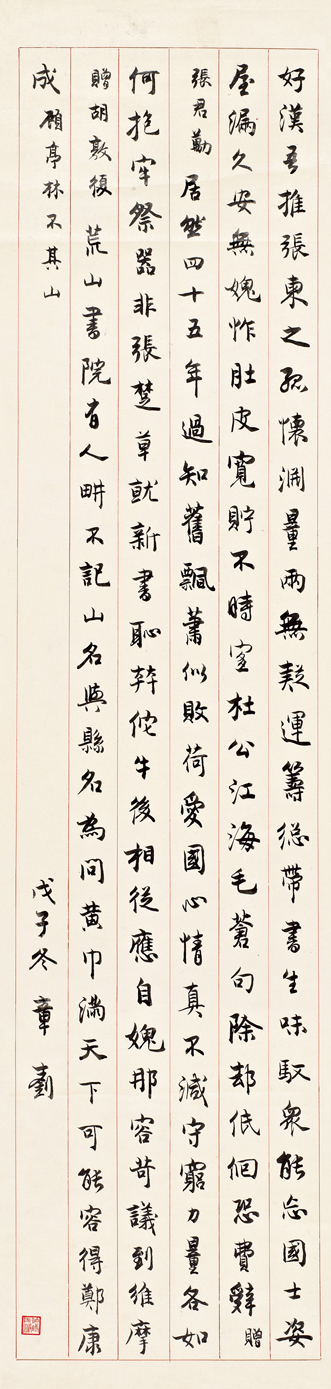 好漢吾推張東之孤懷淵量兩無疑運籌總帶書生味馭衆能忘國士姿
屋漏久安無媿怍肚皮寬貯不時宜杜公江海毛蒼句除却低佪恐費辭贈
張君勱居然四十五年過知舊飄蕭似敗荷愛國心情真不減守窮力量各如
何抱牢祭器非張楚草就新書恥佗牛後相從應自媿那容苛議到維摩
贈胡敦復荒山書院有人畊不記山名與縣名為問黃巾滿天下可能容得鄭康
成顧亭林不其山戊子冬章釗